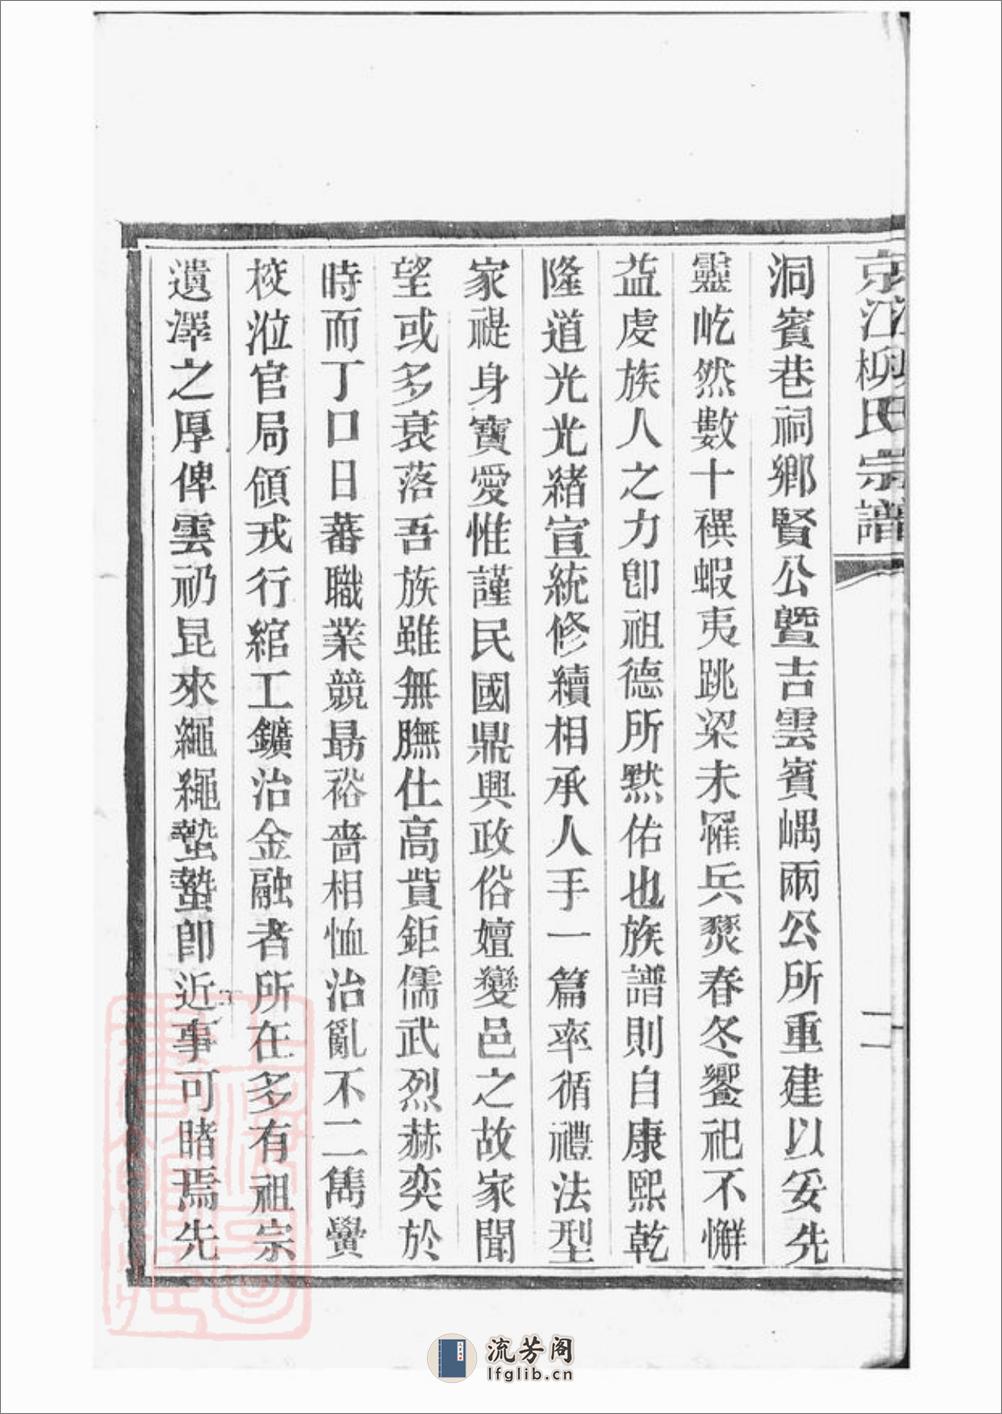 京江柳氏宗譜
二
洞賓巷祠鄉賢公暨吉雲賓嵎兩公所重建以妥先
靈屹然數十禩蝦夷跳梁未罹兵燹春冬饗祀不懈
益虔族人之力卽祖德所默佑也族譜則自康熙乾
隆道光光緒宣統修續相承人手一篇率循禮法型
家禔身寶愛惟謹民國鼎興政俗嬗變邑之故家聞
望或多衰落吾族雖無膴仕高貲鉅儒武烈赫奕於
時而丁口日蕃職業競勗裕嗇相恤治亂不二雋黌
校涖官局領戎行綰工鑛治金融者所在多有祖宗
遺澤之厚俾雲礽昆來繩繩蟄蟄卽近事可睹焉先
流芳阁
lfglib.cn